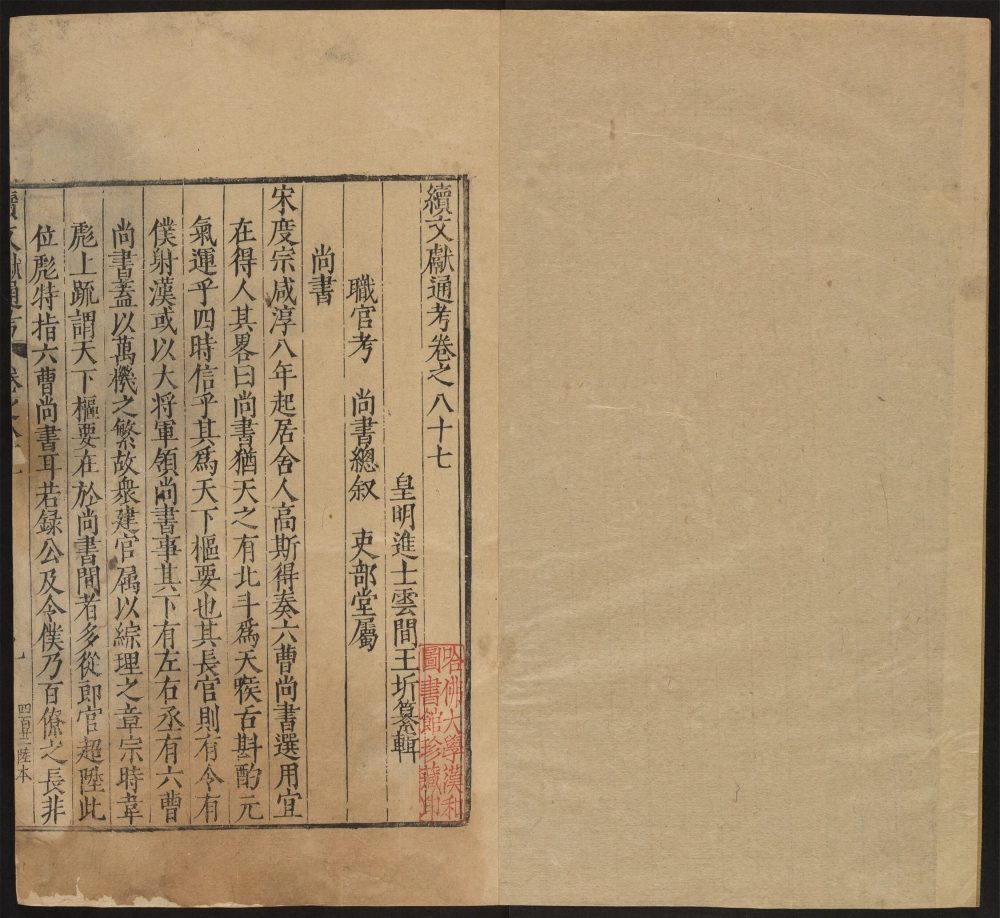 續文獻通考卷之八十七
皇明進士雲間王圻纂輯
職官考 尚書總叙 吏部堂屬
尚書
宋度宗咸淳八年起居舍人高斯得奏六曹尚書選用宜
在得人其畧曰尚書猶天之有北斗爲天喉舌斟酌元
氣運乎四時信乎其爲天下樞要也其長官則有令有
僕射漢或以大将軍領尚書事其下有左右丞有六曹
尚書蓋以萬機之繁故衆建官属以綜理之章宗時韋
彪上疏謂天下樞要在於尚書間者多從郎官超陞此
位彪特指六曹尚書耳若録公及令僕乃百僚之長非
續文獻通考 卷之八十七
哈佛大學漢和
圖書館珍藏印